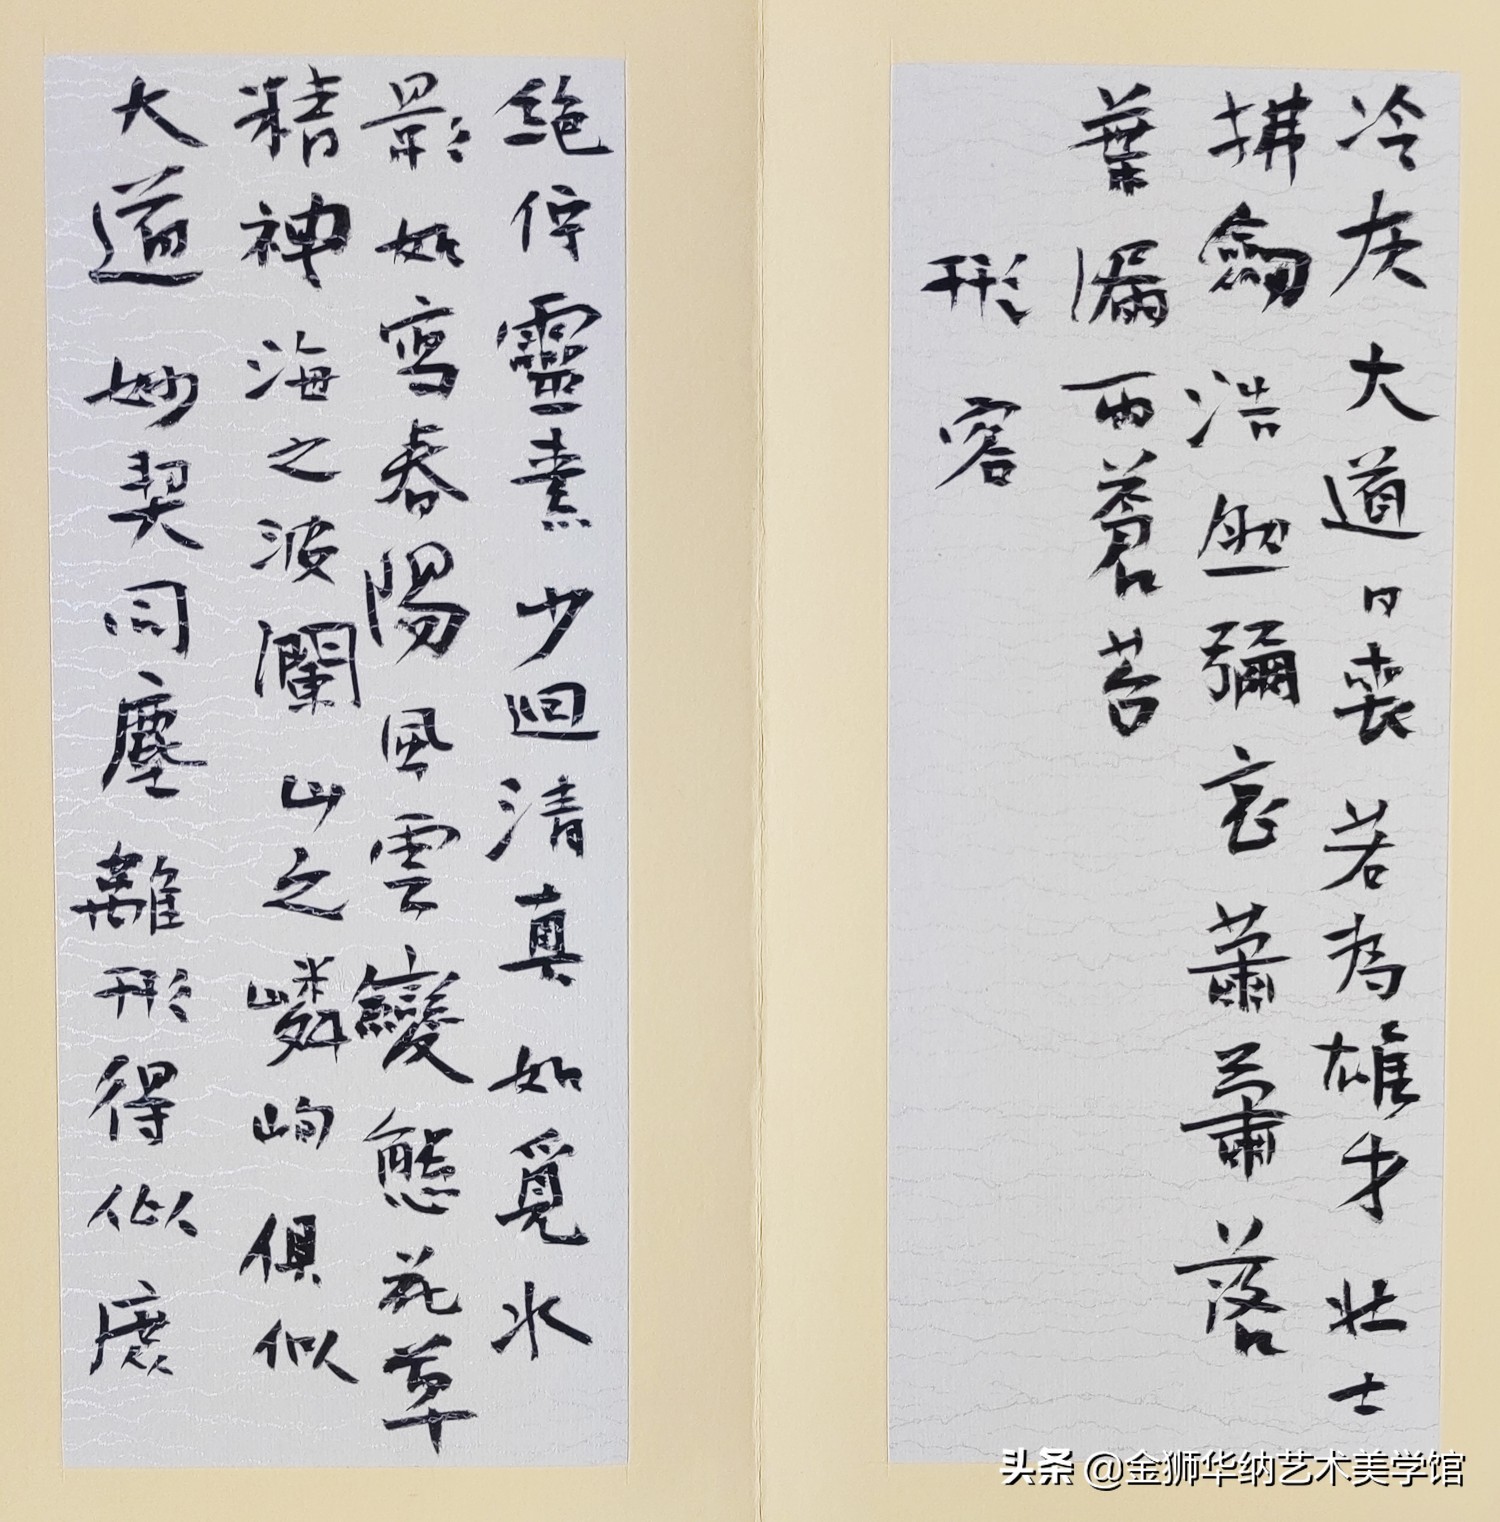 冷灰大道日喪若為雄才壯士
拂劍浩然彌哀蕭蕭落
葉漏雨蒼苔
形容
絕佇靈素少迴清真如覓水
影如寫春陽風雲變態花草
精神海之波瀾山之嶙峋俱似
大道妙契同塵離形得似庶
头条 @金狮华纳艺术美学馆